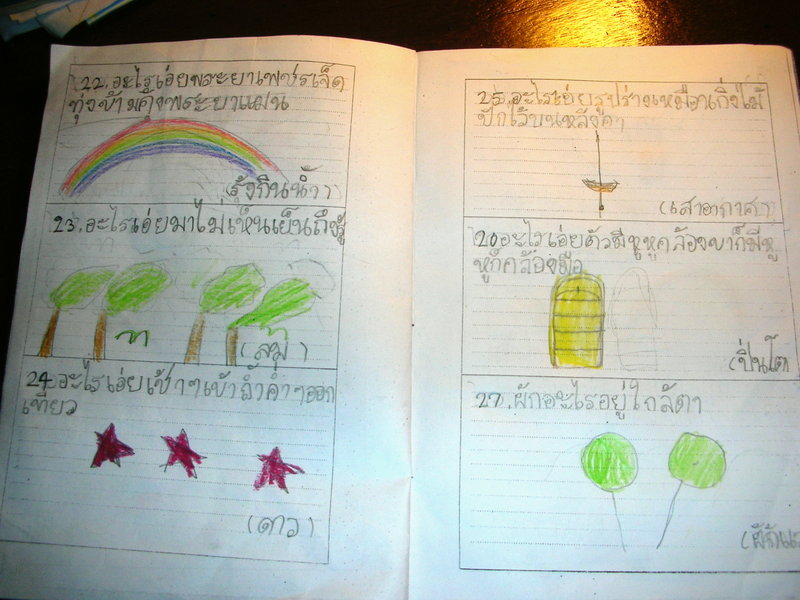 22. อะไรเอ่ยพระยาเพชรเจ็ด
ทุ่งข้ามคุ้งพระยาแฝน
(รุ้งกินน้ำ)
23. อะไรเอ่ยมาไม่เห็นเย็นถึงรู้
(ลม)
24. อะไรเอ่ยเช้าๆเข้าถ้ำค่ำๆออก
เที่ยว
(ดาว)
25. อะไรเอ่ยรูปร่างเหมือนกิ่งไม้
ปักไว้บนหลังคา
(เสาอากาศ)
อะไรเอ่ยตัวมีหูหูคล้องขาก็มีหู
หูก็คล้องมือ
(ปิ่นโต)
27. ผักอะไรอยู่ใกล้ตา